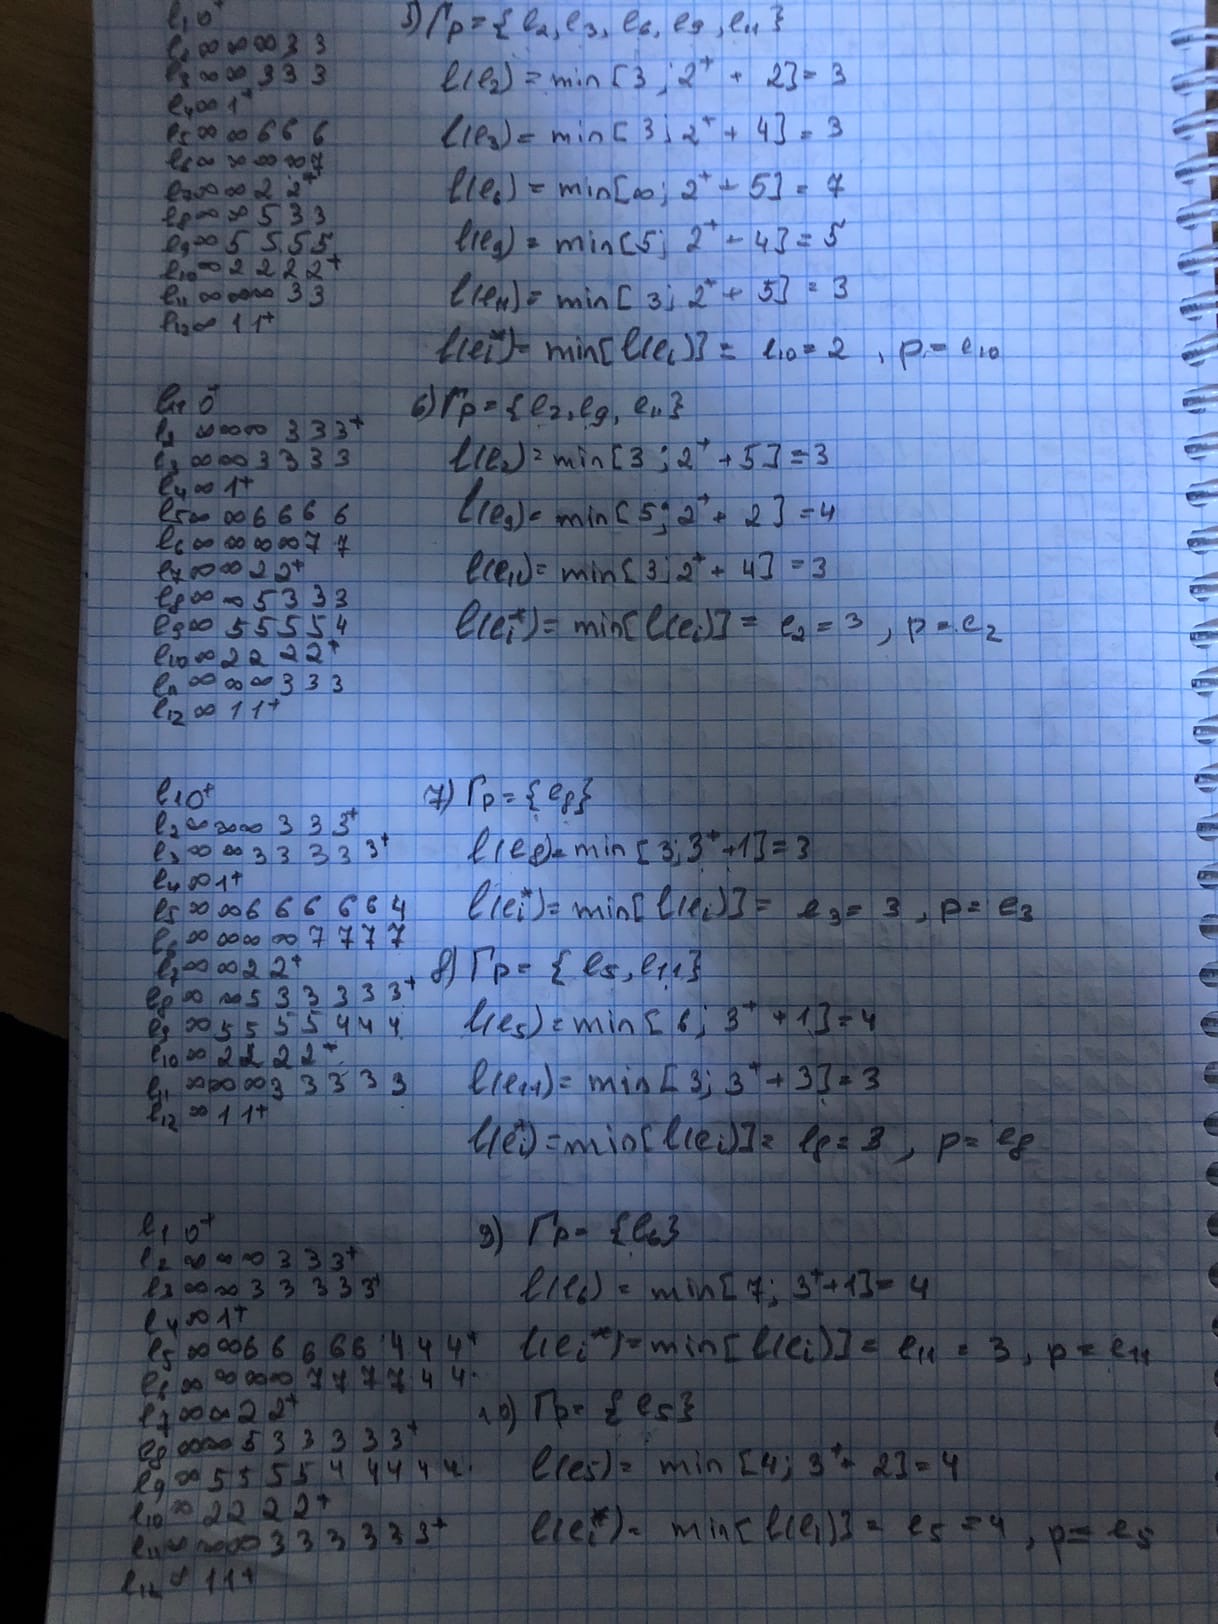 e₁ 0⁺
e₂ ∞ ∞ ∞ 3 3
e₃ ∞ ∞ 3 3 3
e₄ ∞ 1⁺
e₅ ∞ ∞ 6 6 6
e₆ ∞ ∞ ∞ ∞ 7
e₇ ∞ ∞ 2 2⁺
e₈ ∞ ∞ 5 3 3
e₉ ∞ 5 5 5 5
e₁₀ ∞ 2 2 2 2⁺
e₁₁ ∞ ∞ ∞ 3 3
e₁₂ ∞ 1 1⁺
5) Гp = {e₂, e₃, e₆, e₉, e₁₁}
l(e₂) = min[3; 2⁺ + 2] = 3
l(e₃) = min[3; 2⁺ + 4] = 3
l(e₆) = min[∞; 2⁺ + 5] = 7
l(e₉) = min[5; 2⁺ + 4] = 5
l(e₁₁) = min[3; 2⁺ + 5] = 3
l(eᵢ*) = min[l(eᵢ)] = e₁₀ = 2, p = e₁₀
e₁ 0⁺
e₂ ∞ ∞ ∞ 3 3 3⁺
e₃ ∞ ∞ 3 3 3 3
e₄ ∞ 1⁺
e₅ ∞ ∞ 6 6 6 6
e₆ ∞ ∞ ∞ ∞ 7 7
e₇ ∞ ∞ 2 2⁺
e₈ ∞ ∞ 5 3 3 3
e₉ ∞ 5 5 5 5 4
e₁₀ ∞ 2 2 2 2⁺
e₁₁ ∞ ∞ ∞ 3 3 3
e₁₂ ∞ 1 1⁺
6) Гp = {e₂, e₉, e₁₁}
l(e₂) = min[3; 2⁺ + 5] = 3
l(e₉) = min[5; 2⁺ + 2] = 4
l(e₁₁) = min[3; 2⁺ + 4] = 3
l(eᵢ*) = min[l(eᵢ)] = e₂ = 3, p = e₂
e₁ 0⁺
e₂ ∞ ∞ ∞ 3 3 3⁺
e₃ ∞ ∞ 3 3 3 3 3⁺
e₄ ∞ 1⁺
e₅ ∞ ∞ 6 6 6 6 6 4
e₆ ∞ ∞ ∞ ∞ 7 7 7 7
e₇ ∞ ∞ 2 2⁺
e₈ ∞ ∞ 5 3 3 3 3 3⁺
e₉ ∞ 5 5 5 5 4 4 4
e₁₀ ∞ 2 2 2 2⁺
e₁₁ ∞ ∞ ∞ 3 3 3 3 3
e₁₂ ∞ 1 1⁺
7) Гp = {e₈}
l(e₈) = min[3; 3⁺ + 1] = 3
l(eᵢ*) = min[l(eᵢ)] = e₃ = 3, p = e₃
8) Гp = {e₅, e₁₁}
l(e₅) = min[6; 3⁺ + 1] = 4
l(e₁₁) = min[3; 3⁺ + 3] = 3
l(eᵢ*) = min[l(eᵢ)] = e₈ = 3, p = e₈
e₁ 0⁺
e₂ ∞ ∞ ∞ 3 3 3⁺
e₃ ∞ ∞ 3 3 3 3 3⁺
e₄ ∞ 1⁺
e₅ ∞ ∞ 6 6 6 6 6 4 4 4⁺
e₆ ∞ ∞ ∞ ∞ 7 7 7 7 4 4
e₇ ∞ ∞ 2 2⁺
e₈ ∞ ∞ 5 3 3 3 3 3⁺
e₉ ∞ 5 5 5 5 4 4 4 4 4
e₁₀ ∞ 2 2 2 2⁺
e₁₁ ∞ ∞ ∞ 3 3 3 3 3 3⁺
e₁₂ ∞ 1 1⁺
9) Гp = {e₆}
l(e₆) = min[7; 3⁺ + 1] = 4
l(eᵢ*) = min[l(eᵢ)] = e₁₁ = 3, p = e₁₁
10) Гp = {e₅}
l(e₅) = min[4; 3⁺ + 2] = 4
l(eᵢ*) = min[l(eᵢ)] = e₅ = 4, p = e₅